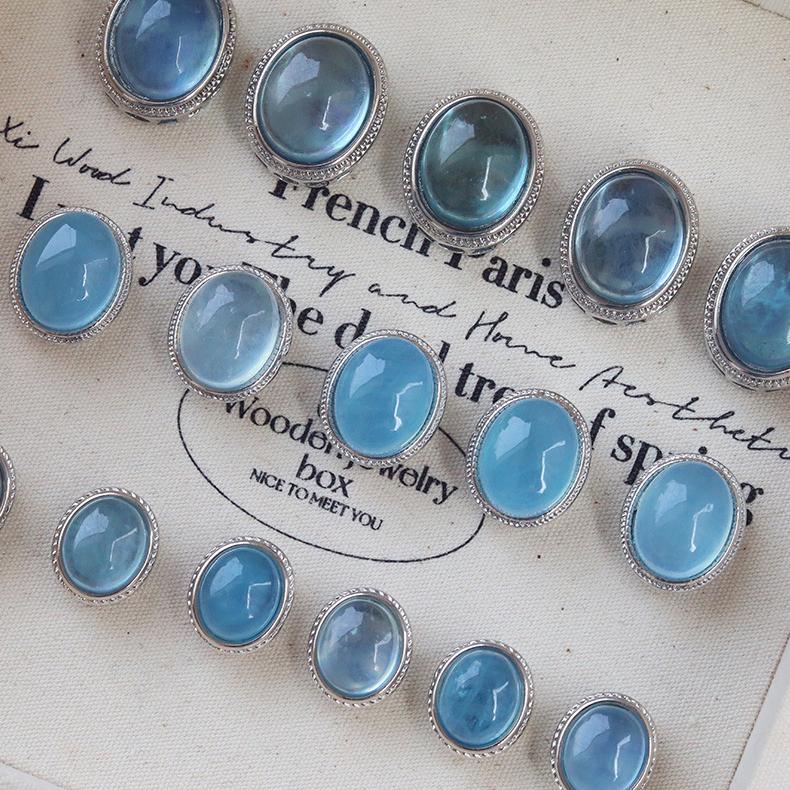 Xi Wood Industry and Home Aesthetic
French Paris
I you the d tree of spring
Wooden jewelry
box
NICE TO MEET YOU